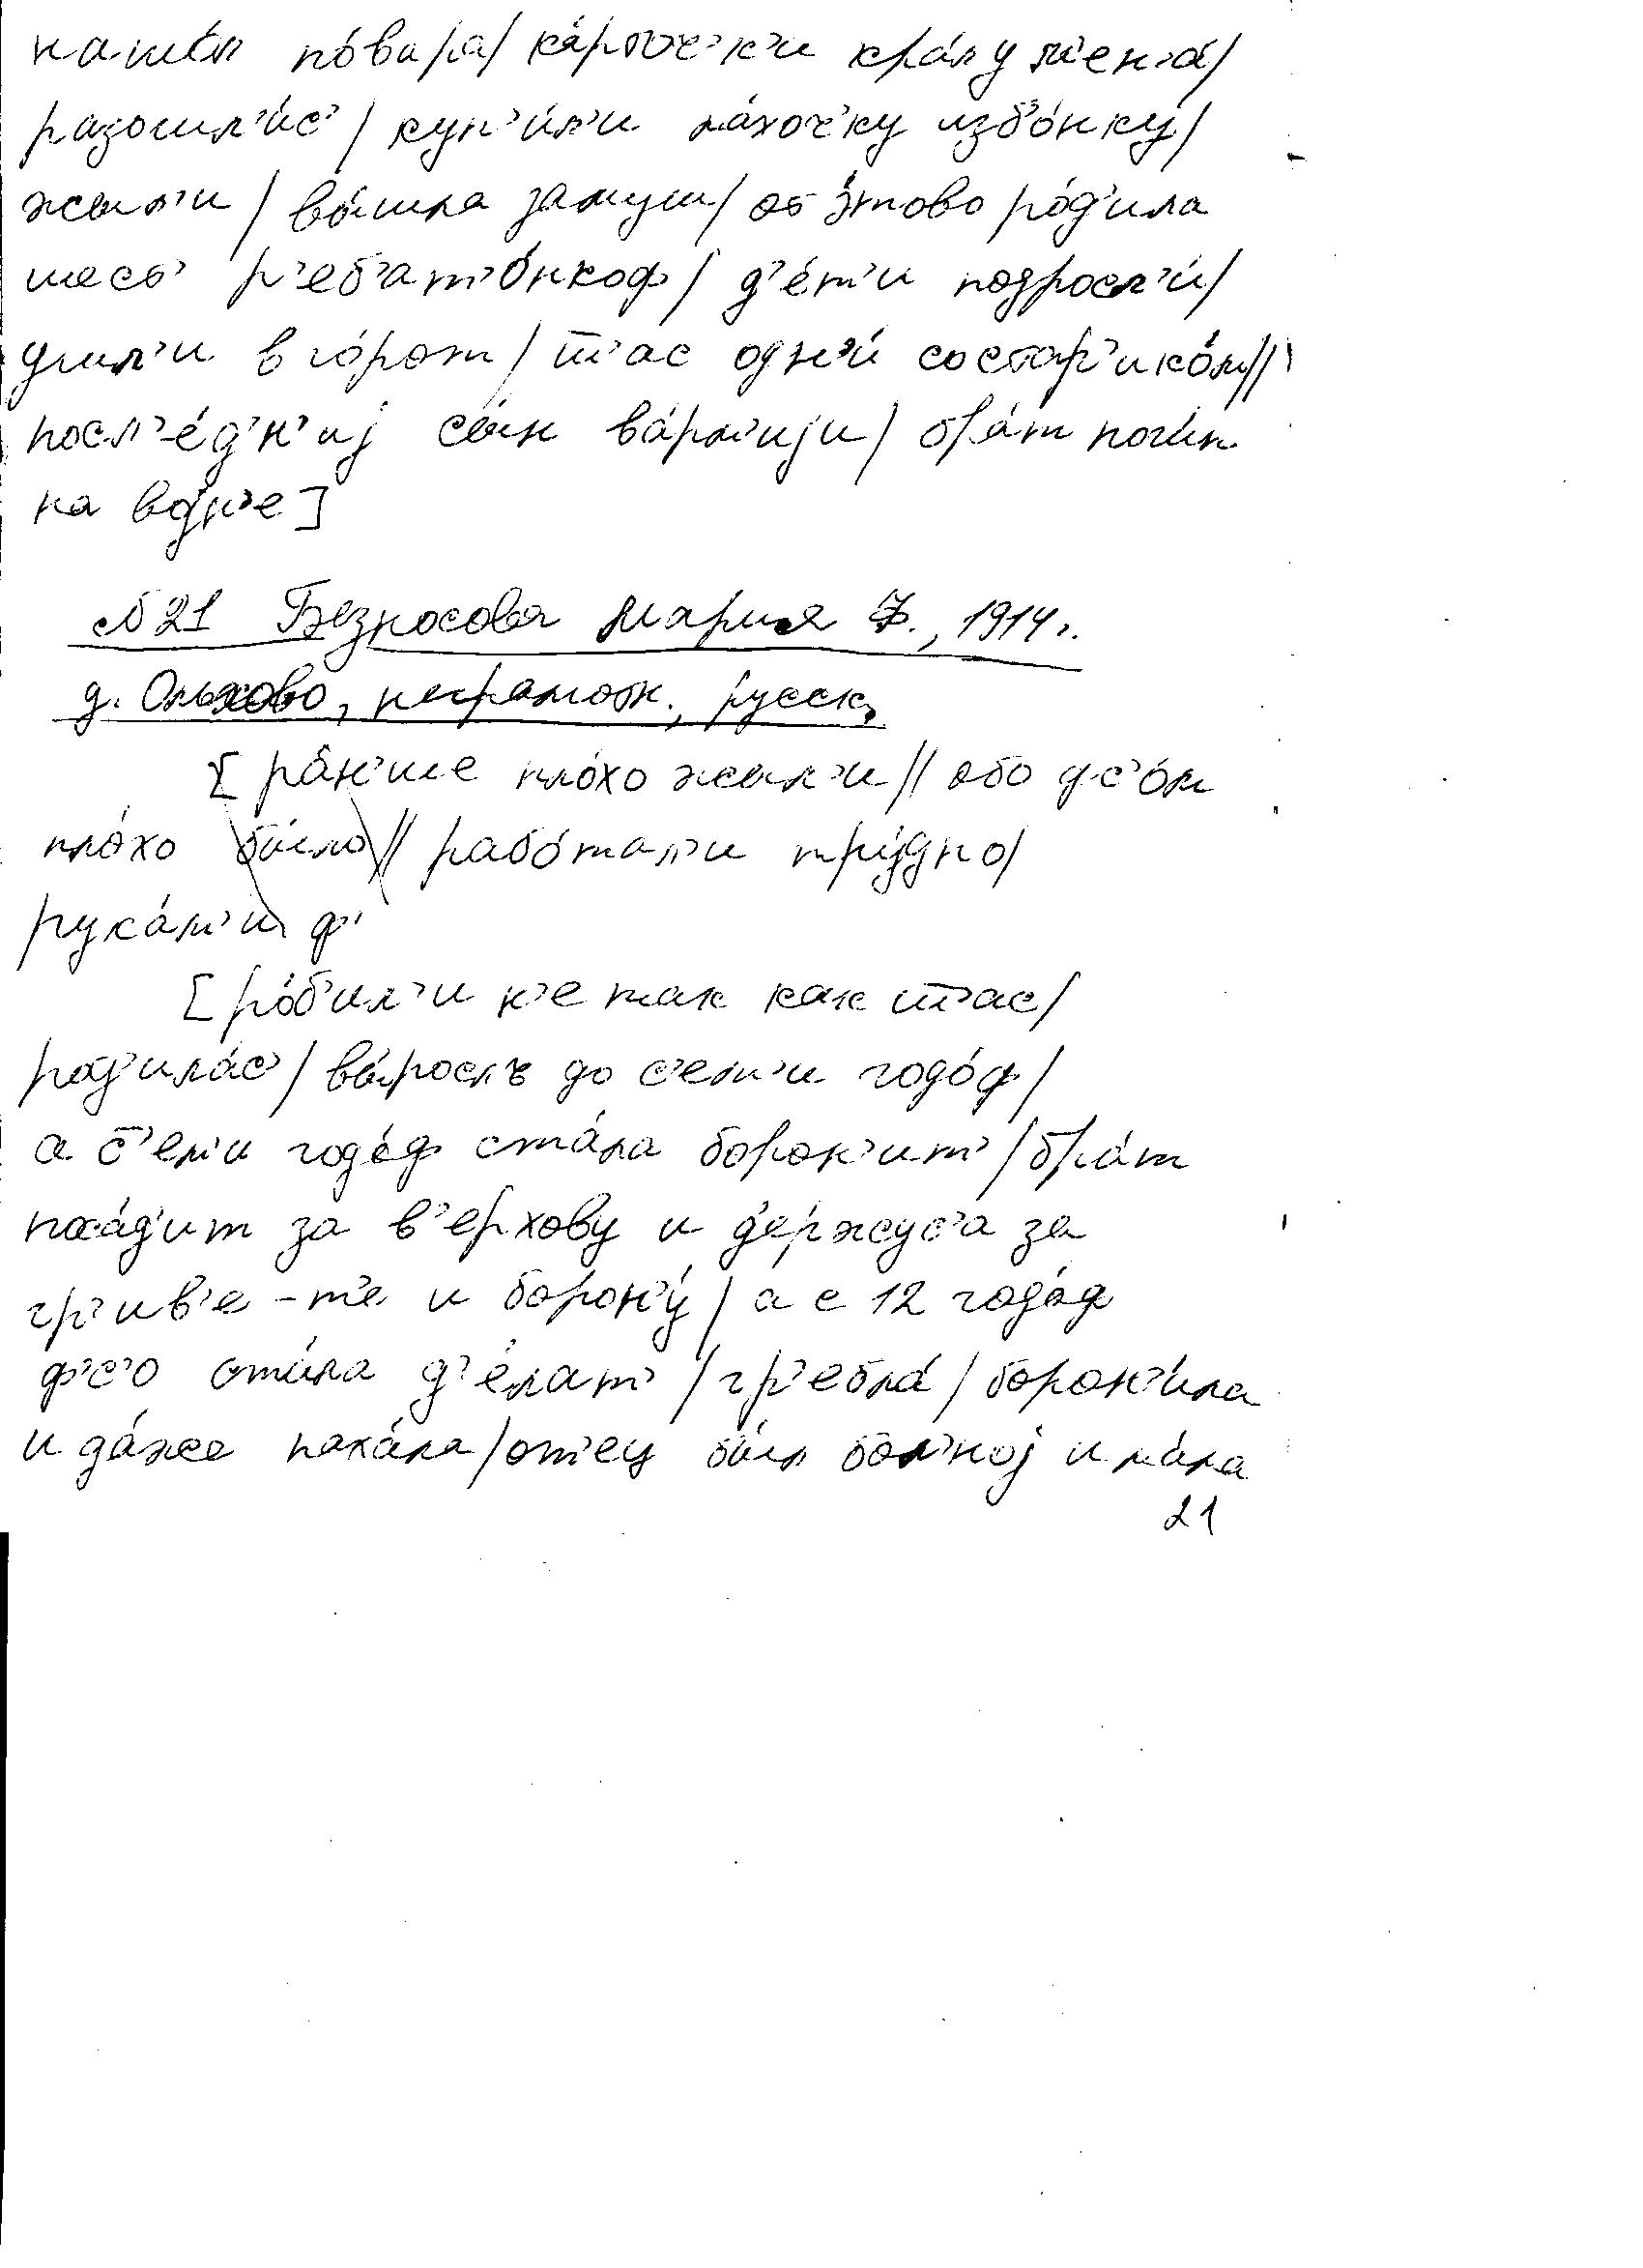 нашóл пóвара/ кáрточ'к'и крáлу м'ен'á/
разошл'и́с'/ куп'и́л'и мáхоч'ку изб'óнку/
жыл'и/ вы́шла замуш/ об э́тово рóд'ила
шес'т' р'еб'ат'óнкоф/ д'éт'и подросл'и́/
ушл'и в гóрот/ т'ас одн'и́ со стар'икóм//
посл'éд'н'иј сы́н в áрм'ији/ брáт поги́п
на војн'е]
№21 Безносова Мария Ф., 1914 г.
д. Ольхово, неграмотн., русск.
[рáн'ше плóхо жыл'и// обо фс'óм
плóхо бы́ло// рабóтал'и тру́дно/
рукáм'и ф'
[рóб'ил'и н'е так как т'ас/
род'илáс'/ вы́рослъ до с'ем'и годóф/
а с'ем'и годóф стáла борон'ит'/ брáт
посáд'ит за в'ерхову и д'ержус'а за
гр'ив'е-т'е и борон'у́/ а с 12 годóф
ф'с'о стáла д'éлат'/ гр'еблá/ борон'и́ла
и дáже пахáла/ от'ец бы́л бол'ноj и мáла
21